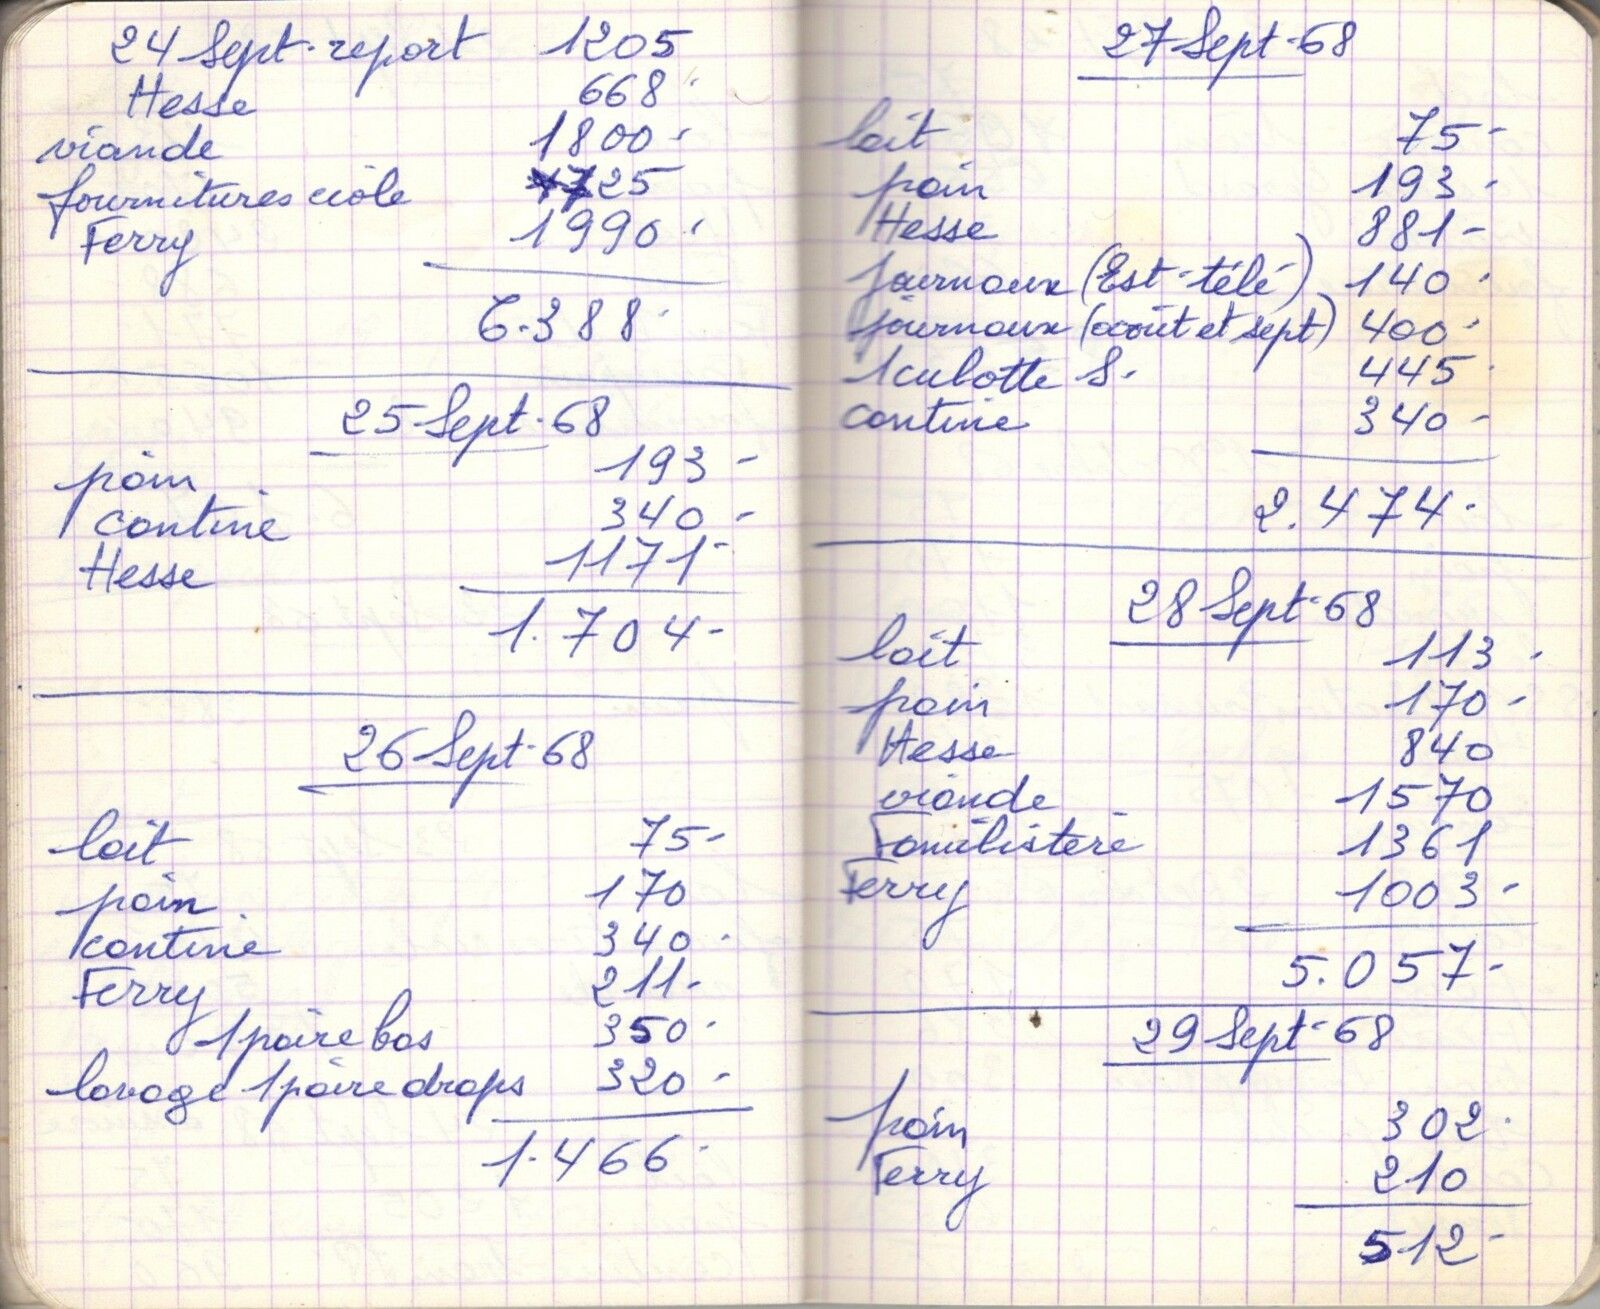 24 Sept. report 1205
Hesse 668.
viande 1800.-
fournitures école 725
Ferry 1990.
6.388.
25 Sept. 68
pain 193-
cantine 340-
Hesse 1171-
1.704-
26 Sept. 68
lait 75-
pain 170
cantine 340.
Ferry 211-
1 paire bas 350.
lavage 1 paire draps 320-
1.466.
27 Sept. 68
lait 75-
pain 193.
Hesse 881-
journaux (Est-télé) 140.
journaux (août et sept) 400.
1 culotte S. 445.
cantine 340-
2.474.
28 Sept. 68
lait 113.
pain 170-
Hesse 840
viande 1570
Familistère 1361
Ferry 1003-
5.057-
29 Sept. 68
pain 302.
Ferry 210
512-